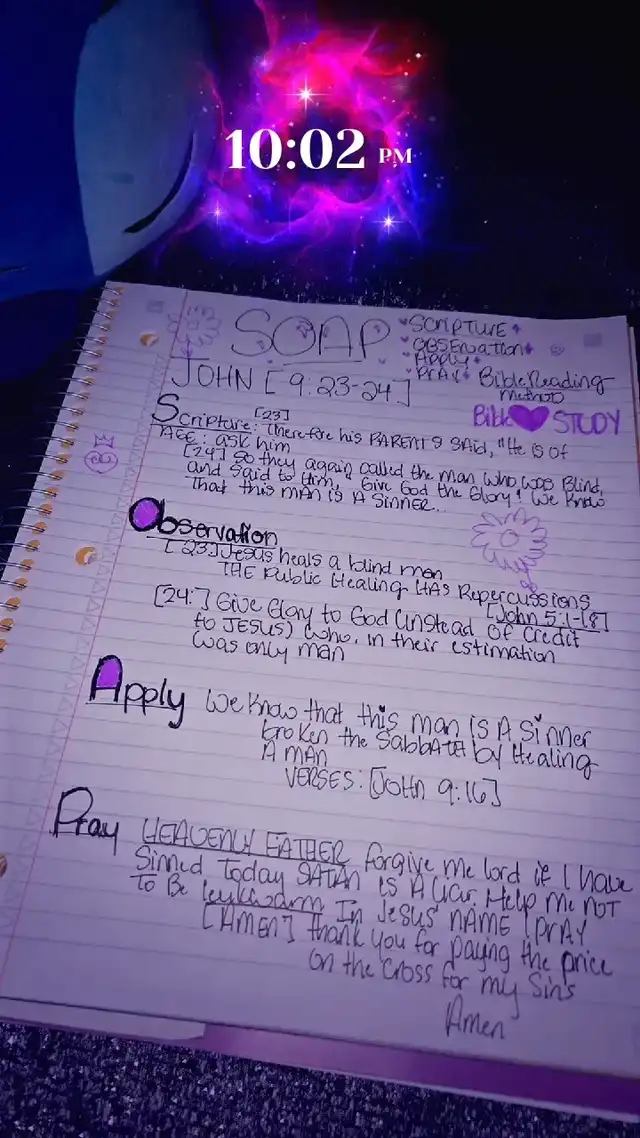 10:02 PM
SOAP
SCRIPTURE
OBSERVATION
APPLY
PRAY Bible Reading
Method
JOHN [9:23-24]
Bible STUDY
Scripture: [23] Therefore his PARENTS SAID, "He is of
AGE: ask him
[24] So they again called the man who was Blind,
and said to Him, " Give God the Glory! We Know
That this man is A Sinner...
Observation
[23] Jesus heals a blind man
THE Public Healing HAS Repercussions
[John 5:1-18]
[24:] Give Glory to God (instead of credit
to JESUS) who, in their estimation
was only man
Apply We Know that this man is A Sinner
broken the SabbATH by Healing
A man
VERSES: [John 9:16]
Pray HEAVENLY FATHER forgive me lord if I have
Sinned Today SATAN is A liar. Help me not
To Be leukwarm In Jesus' NAME I PRAY
[AMEN] thank you for payng the price
on the cross for my Sins
Amen